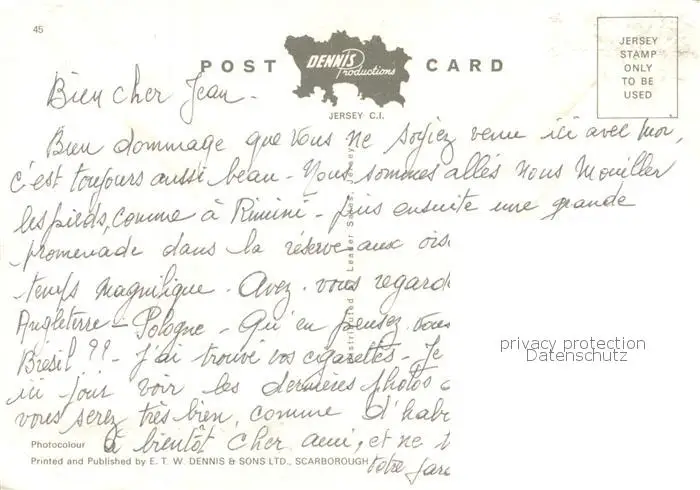 45
POST CARD
DENNIS
Productions
JERSEY C.I.
JERSEY
STAMP
ONLY
TO BE
USED
Bien cher Jean -
Bien dommage que vous ne soyiez venu ici avec moi,
c'est toujours aussi beau - Nous sommes allés nous mouiller
les pieds, comme à Rimini - puis ensuite une grande
promenade dans la réserve aux ois
temps magnifique - Avez-vous regard
Angleterre - Pologne - Qu'en pensez-vous
Brésil ?? - J'ai trouvé vos cigarettes - Je
ici pour voir les dernières photos
vous serez très bien, comme d'hab
à bientôt cher ami, et ne
votre
Distributed by Leader Sales, Jersey
privacy protection
Datenschutz
Photocolour
Printed and Published by E. T. W. DENNIS & SONS LTD., SCARBOROUGH